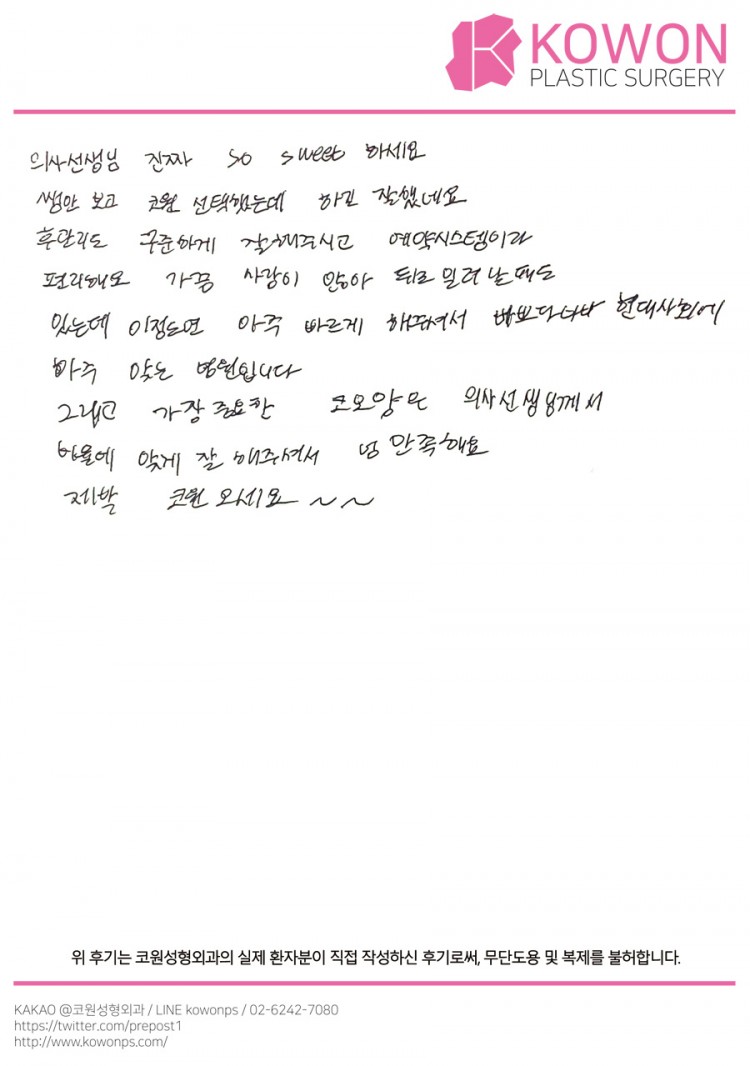 KOWON
PLASTIC SURGERY
의사선생님 진짜 so sweet 하세요
쌤만 보고 코원 선택했는데 하길 잘했네요
후관리도 꾸준하게 잘해주시고 예약시스템이라
편리해요 가끔 사람이 많아 뒤로 밀려 날때도
있는데 이정도면 아주 빠르게 해주셔서 바쁘다바빠 현대사회에
아주 맞는 병원입니다
그리고 가장 중요한 코모양도 의사선생님께서
비율에 맞게 잘 해주셔서 넘 만족해요
제발 코원 오세요 ~~
위 후기는 코원성형외과의 실제 환자분이 직접 작성하신 후기로써, 무단도용 및 복제를 불허합니다.
KAKAO @코원성형외과 / LINE kowonps / 02-6242-7080
https://twitter.com/prepost1
http://www.kowonps.com/